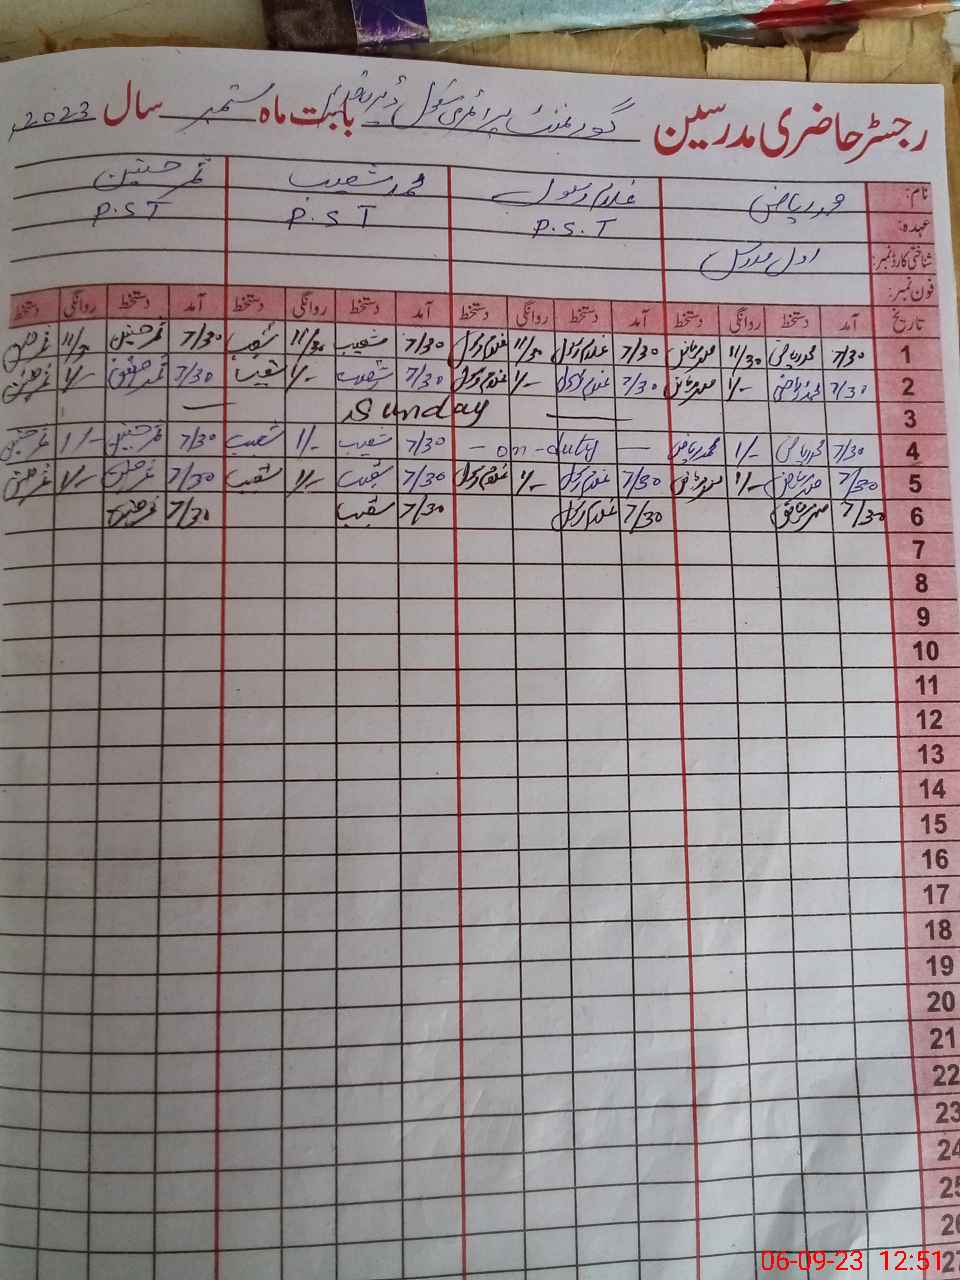 رجسٹر حاضری مدرسین گورنمنٹ پرائمری سکول بابت ماہ ستمبر سال 2023
نام: محمد ریاض غلام رسول محمد شعیب ثمر حسنین
عہدہ: P.S.T P.S.T P.S.T
شناختی کارڈ نمبر: اول مدرس
فون نمبر:
تاریخ آمد دستخط روانگی دستخط آمد دستخط روانگی دستخط آمد دستخط روانگی دستخط آمد دستخط روانگی دستخط
1 7/30 محمد ریاض 11/30 محمد ریاض 7/30 غلام رسول 11/30 غلام رسول 7/30 شعیب 11/30 شعیب 7/30 ثمر حسنین 11/30 ثمر حسنین
2 7/30 محمد ریاض 1/- محمد ریاض 7/30 غلام رسول 1/- غلام رسول 7/30 شعیب 1/- شعیب 7/30 ثمر حسنین 1/- ثمر حسنین
3 — Sunday —
4 7/30 محمد ریاض 1/- محمد ریاض — on-duty — 7/30 شعیب 1/- شعیب 7/30 ثمر حسنین 1/- ثمر حسنین
5 7/30 محمد ریاض 1/- محمد ریاض 7/30 غلام رسول 1/- غلام رسول 7/30 شعیب 1/- شعیب 7/30 ثمر حسنین 1/- ثمر حسنین
6 7/30 محمد ریاض 7/30 غلام رسول 7/30 شعیب 7/30 ثمر حسنین
7
8
9
10
11
12
13
14
15
16
17
18
19
20
21
22
23
24
25
26
27
06-09-23 12:51